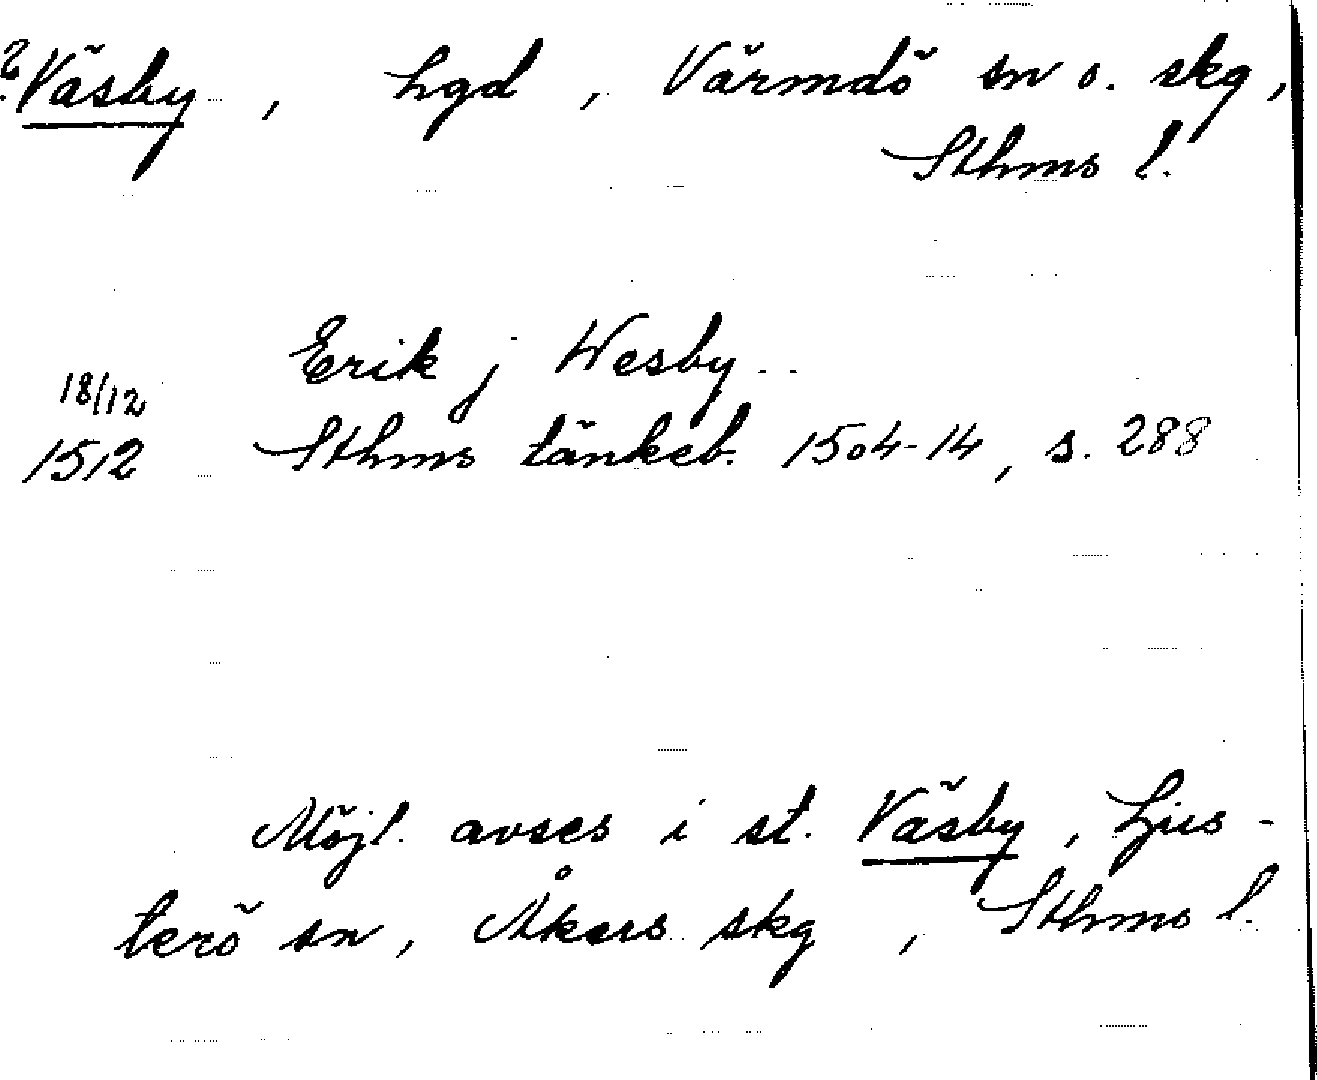 ? Väsby, hgd, Värmdö sn o. skg,
Sthms l.
Erik j Wesby
18/12
1512 Sthms tänkeb. 1504-14, s. 288
Möjl. avses i st. Väsby, Ljus-
terö sn, Åkers skg, Sthms l.